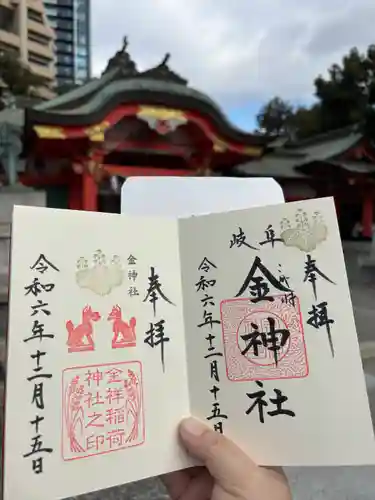 岐阜
奉拝
金神社
令和六年十二月十五日
奉拝
金神社
金祥稲荷
神社之印
令和六年十二月十五日